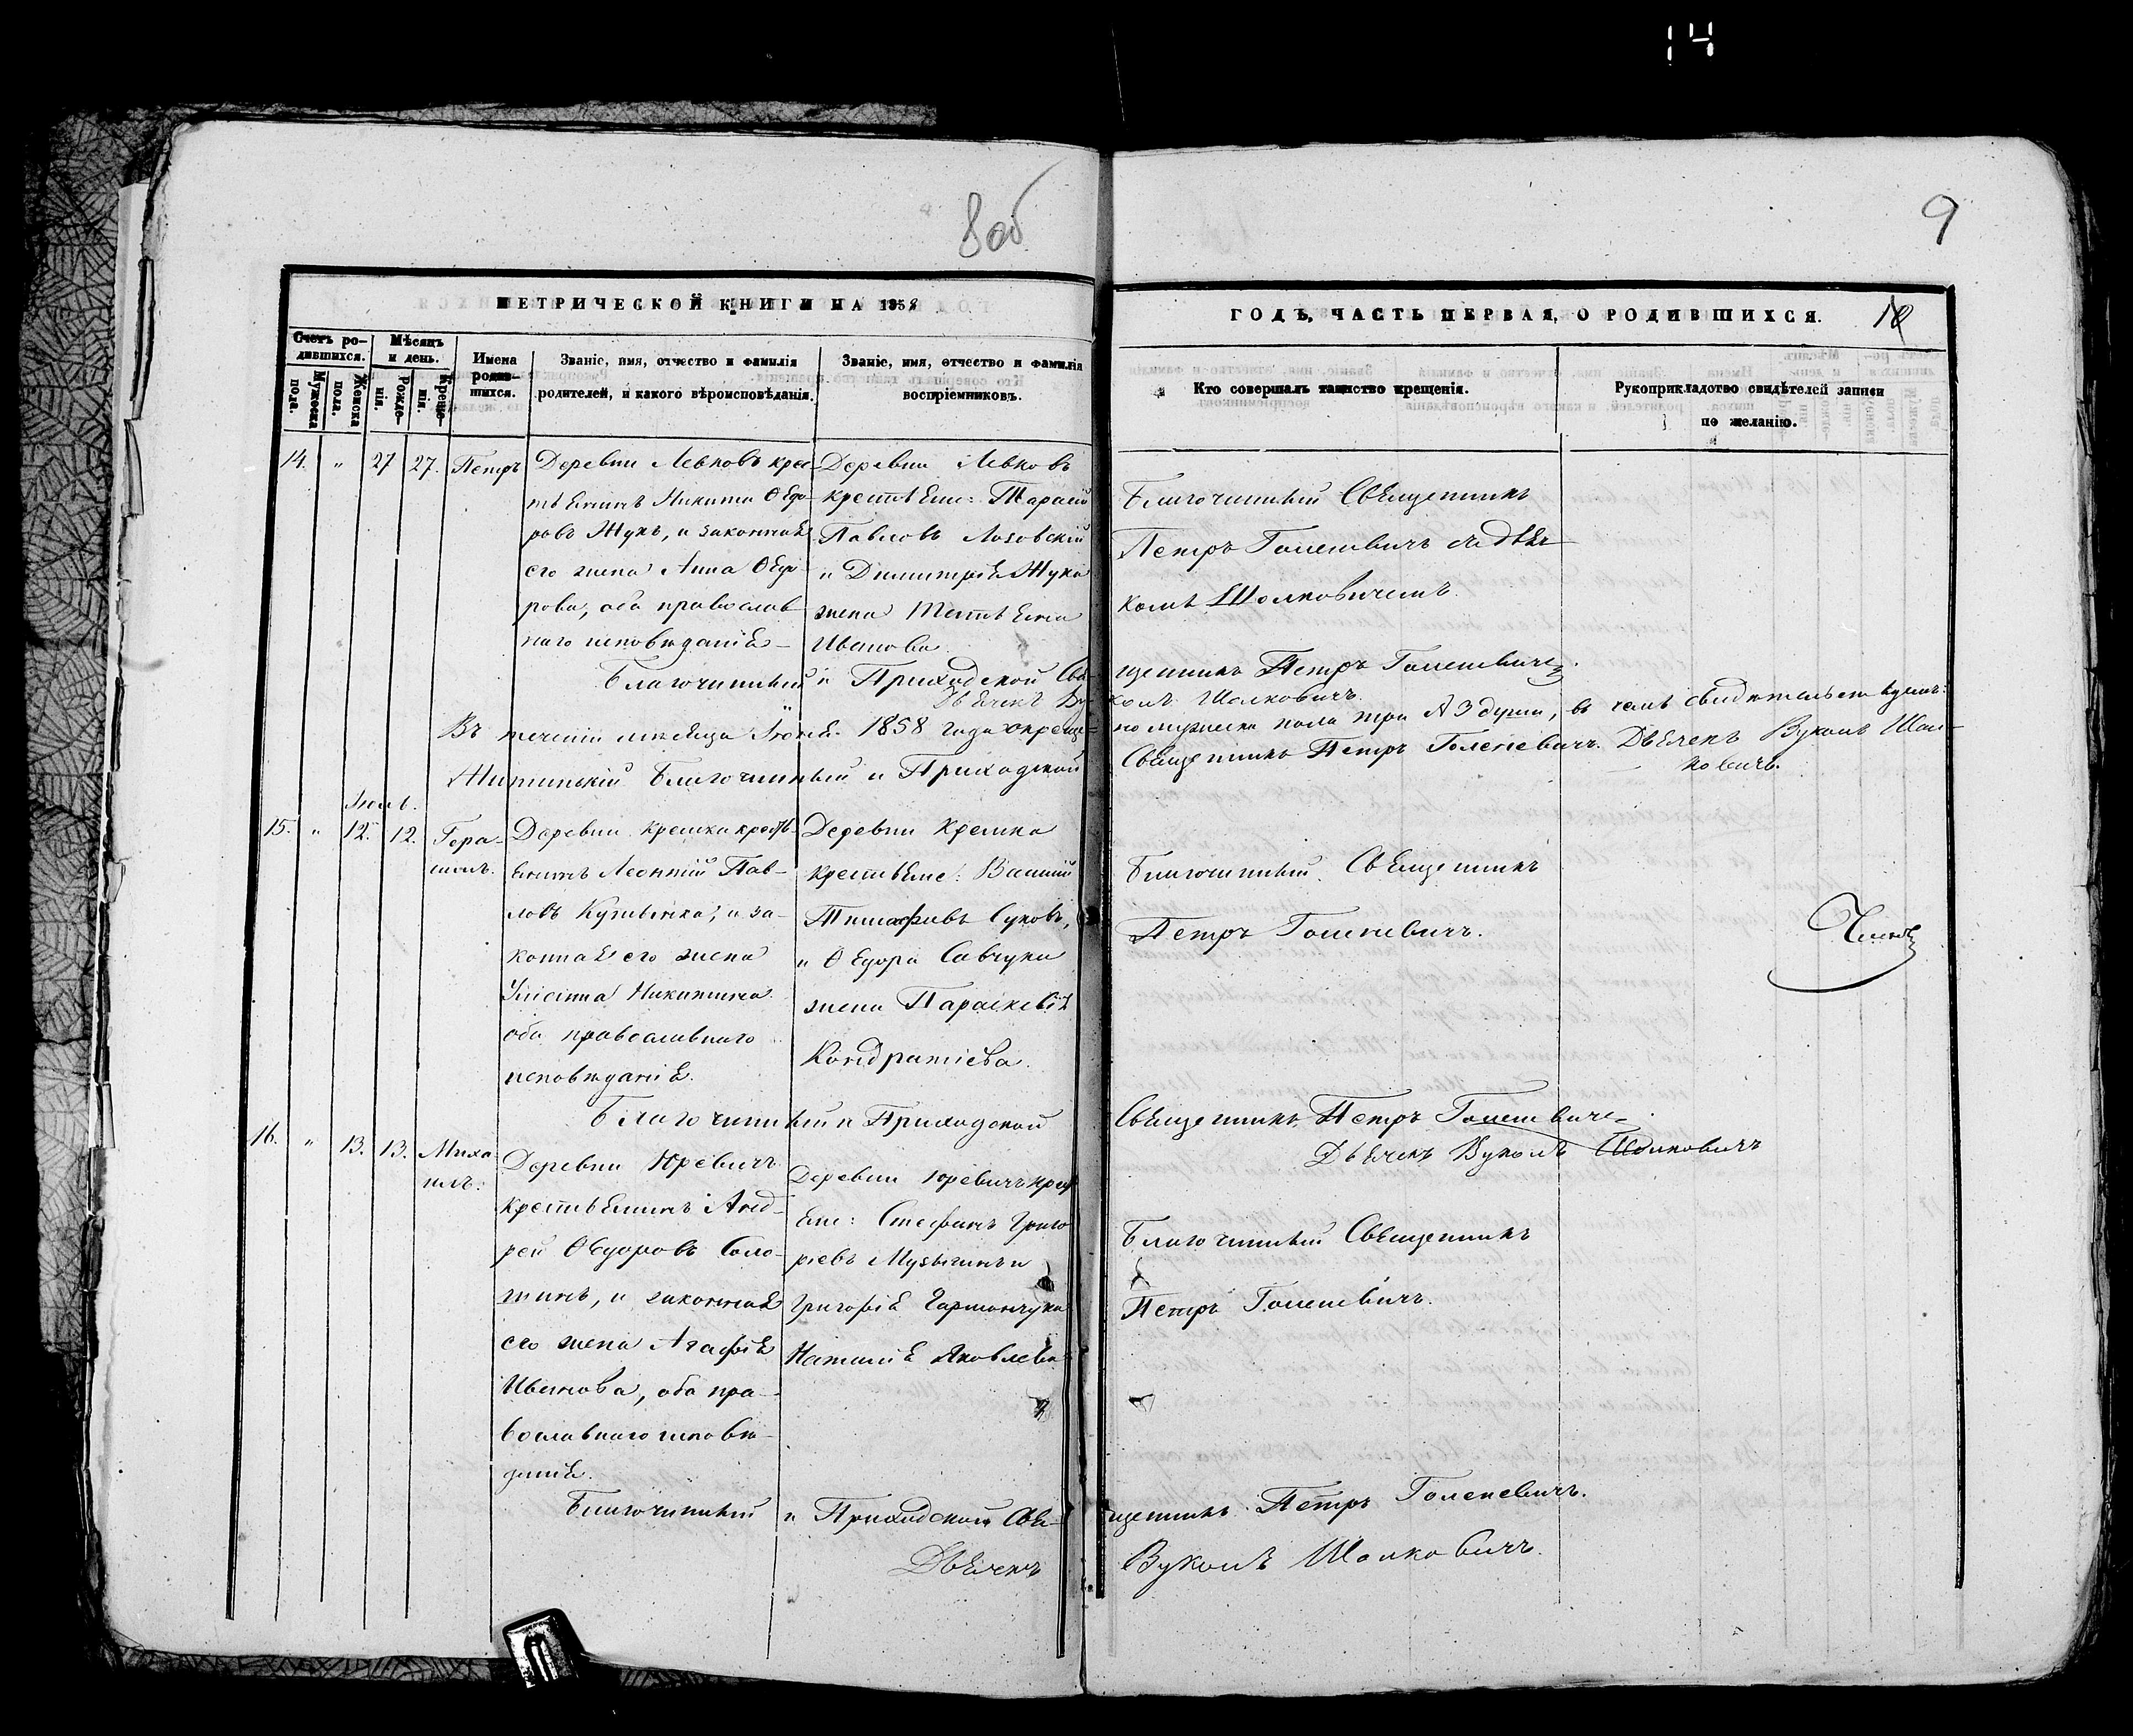 14
8 об
9
МЕТРИЧЕСКОЙ КНИГИ НА 1858
ГОДЪ, ЧАСТЬ ПЕРВАЯ, О РОДИВШИХСЯ.
Счетъ ро-
дившихся.
Мужеска
пола.
Женска
пола.
Мѣсяцъ
и день.
Рожде-
нія.
Креще-
нія.
Имена
родив-
шихся.
Званіе, имя, отчество и фамилія
родителей, и какого вѣроисповѣданія.
Званіе, имя, отчество и фамилія
воспріемниковъ.
Кто совершалъ таинство крещенія.
Рукоприкладство свидѣтелей записи
по желанію.
14. " 27 27. Петръ
Деревни Левковъ крес-
тьянинъ Никита Ѳедо-
ровъ Жукъ, и законная
его жена Анна Ѳедо-
рова, оба православ-
наго исповѣданія
Деревни Левковъ
крестьяне: Тарасій
Павловъ Лозовскій
и Димитрія Жука
жена Татьяна
Иванова
Благочинный Священникъ
Петръ Голеневичъ съ дья-
комъ Шолковичемъ.
Благочинный и Приходской Свя-
щенникъ Петръ Голеневичъ.
Дьячекъ Ву-
колъ Шолковичъ.
Въ теченіи мѣсяца Іюня 1858 года окреще-
но мужеска пола три 3 души, въ чемъ свидѣтельствуемъ:
Благочинный и Приходской
Священникъ Петръ Голеневичъ. Дьячекъ Вуколъ Шол-
ковичъ.
Іюль.
15. " 12. 12. Гера-
симъ.
Деревни Кремка крестьян-
янинъ Леонтій Пав-
ловъ и за-
конная его жена
Никитина
оба православнаго
исповѣданія.
Деревни Кремка
крестьяне: Василій
Суковъ,
и Ѳедора Савчука
жена Параскевія
Кондратіева.
Благочинный Священникъ
Петръ Голеневичъ.
Благочинный и Приходской
Священникъ Петръ Голеневичъ
Дьячекъ Вуколъ Шолковичъ
16. " 13. 13. Миха-
илъ.
Деревни Юревичъ
крестьянинъ Анд-
рей Ѳедоровъ Соло-
и законная
его жена Агафія
Иванова, оба пра-
вославнаго исповѣ-
данія.
Деревни Юревичъ крест
яне: Стефанъ Григо
рьевъ Музычинъ и
Григорія Гармончука
Наталія Яковлева
Благочинный Священникъ
Петръ Голеневичъ.
Благочинный и Приходской Свя-
щенникъ Петръ Голеневичъ.
Дьячекъ
Вуколъ Шолковичъ.